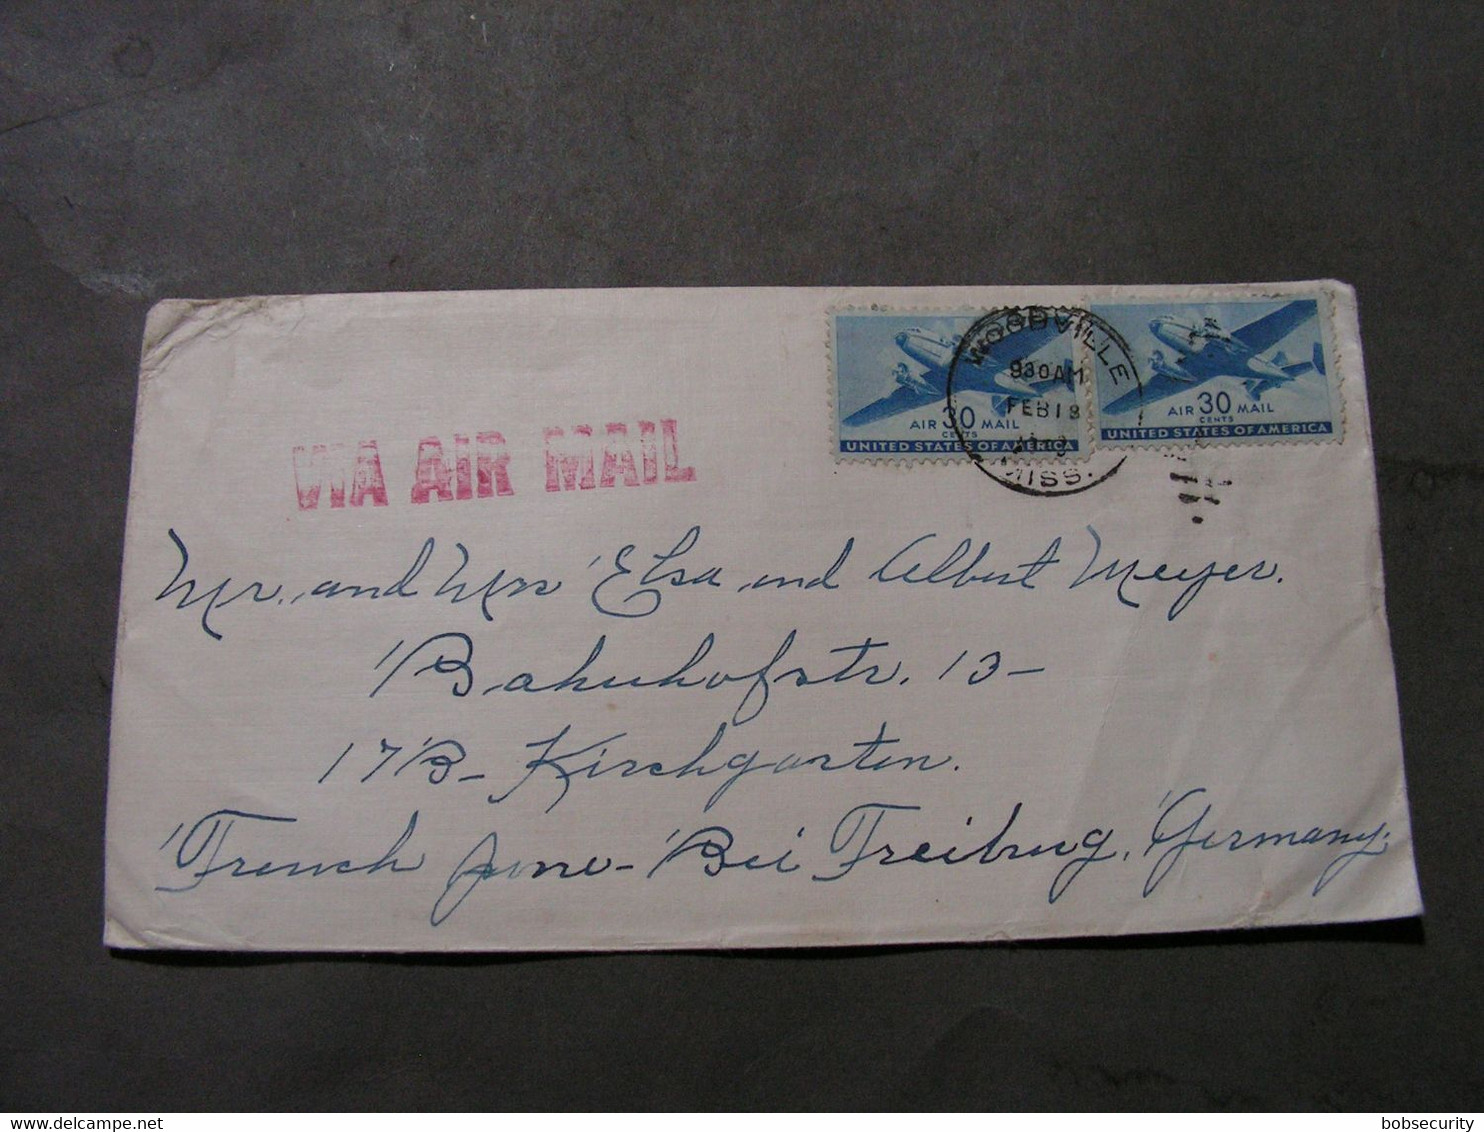 WOODVILLE
930AM
FEB 18
MISS.
AIR 30 MAIL
CENTS
UNITED STATES OF AMERICA
AIR 30 MAIL
CENTS
UNITED STATES OF AMERICA
VIA AIR MAIL
Mr. and Mrs Elsa and Albert Meyer.
Bahnhofstr. 13-
17B- Kirchgarten.
French Zone- Bei Freiburg, Germany.
bobsecurity